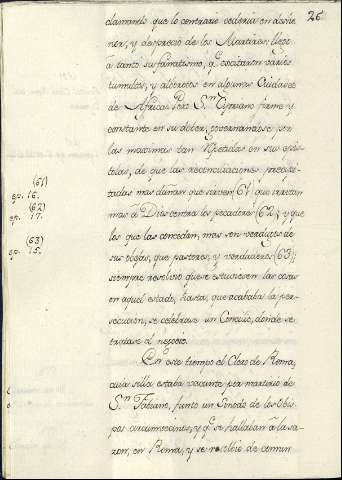 26
clamando que lo contrario cederia en desho
nor, y desprecio de los Martires: llegò
à tanto su fanatismo, q.e excitaron varios
tumultos, y alborotos en algunas Ciudades
de Africa. Pero S.n Cipriano firme y
constante en su dolor, governandose por
las maximas tan repetidas en sus epis-
tolas, de que las reconciliaciones precipi-
tadas mas dañan que sirven (61) que irritan
mas à Dios contra los pecadores (62); y que
los que las conceden, mas son verdugos de
sus ovejas, que pastores, y verdaderos (63);
siempre resolvió que se estuviesen las cosas
en aquel estado, hasta, que acabada la per-
secucion, se celebrase un Concilio, donde se
tratase el negocio.
Por este tiempo el Clero de Roma,
cuia silla estaba vacante por martirio de
S.n Fabiano, juntò un Sinodo de los Obis-
pos circumvecinos, y q.e se hallaban à la sa-
zon, en Roma, y se resolvio de comun
(61)
ep. 16.
(62)
ep. 17.
(63)
ep. 15.